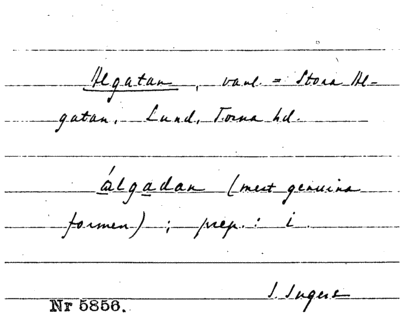 Algatan, vanl. = Stora Al-
gatan, Lund, Torna hd.
álgadan (mest genuina
formen); prep.: i
I. Ingers
Nr 5856.